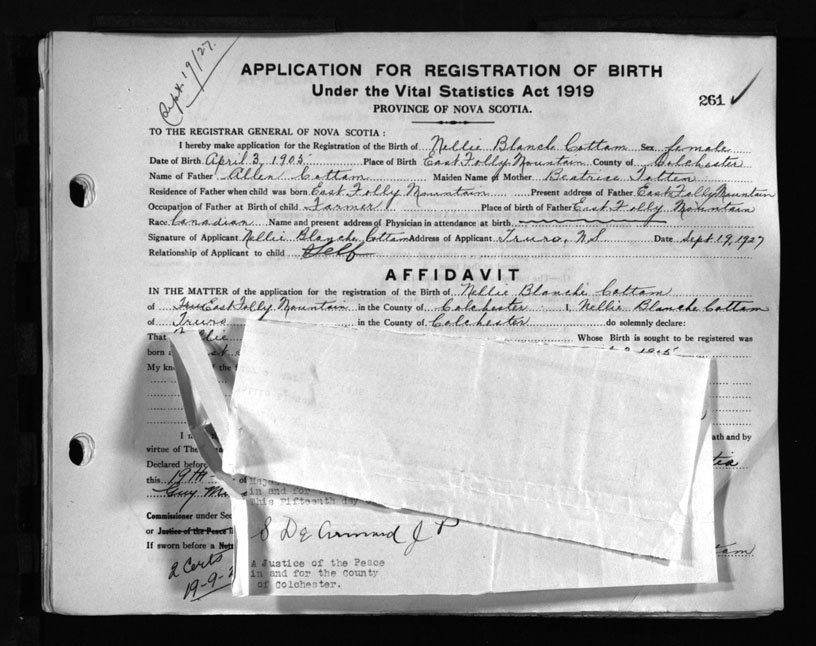 Sept 19/27.
APPLICATION FOR REGISTRATION OF BIRTH
Under the Vital Statistics Act 1919
PROVINCE OF NOVA SCOTIA.
261 ✓
TO THE REGISTRAR GENERAL OF NOVA SCOTIA:
I hereby make application for the Registration of the Birth of Nellie Blanche Cottam Sex female
Date of Birth April 3, 1905 Place of Birth East Folly Mountain County of Colchester
Name of Father Allen Cottam Maiden Name of Mother Beatrice Totten
Residence of Father when child was born East Folly Mountain Present address of Father East Folly Mountain
Occupation of Father at Birth of child Farmer Place of birth of Father East Folly Mountain
Race Canadian Name and present address of Physician in attendance at birth
Signature of Applicant Nellie Blanche Cottam Address of Applicant Truro, N.S. Date Sept 19, 1927
Relationship of Applicant to child Self
AFFIDAVIT
IN THE MATTER of the application for the registration of the Birth of Nellie Blanche Cottam
of East Folly Mountain in the County of Colchester I, Nellie Blanche Cottam
of Truro in the County of Colchester do solemnly declare:
That Nellie Whose Birth is sought to be registered was
born 1905
My of the
I ath and by
virtue of The
Declared before
this 19th of
Guy
in and for
This Fifteenth
Commissioner under Sec
or Justice of the Peace
If sworn before a
J P
A Justice of the Peace
in and for the County
of Colchester.
2 Certs
19-9-2